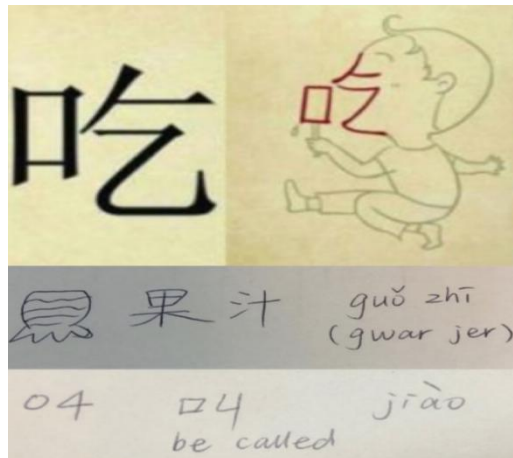 吃 吃
果汁 guǒ zhī
(gwar jer)
04 叫 jiào
be called